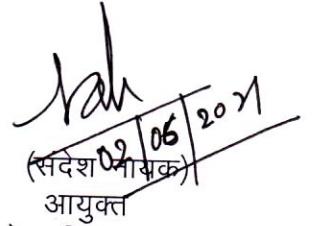 02/06/2021
(संदेश नायक)
आयुक्त